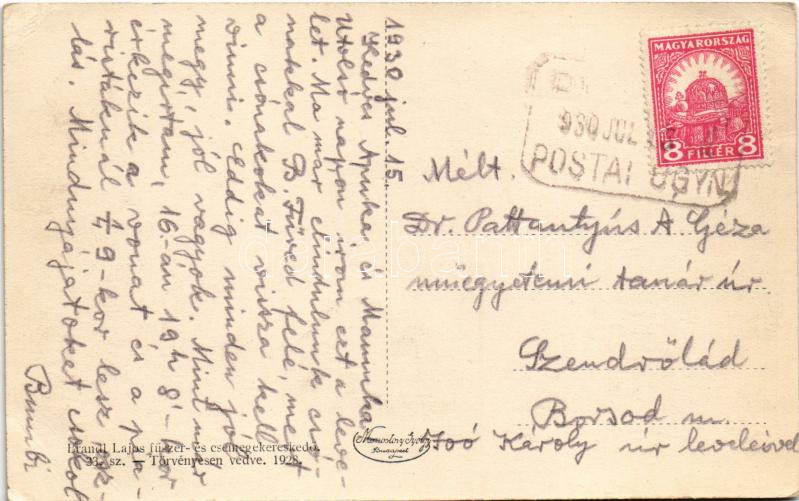 1930 jul. 15.
Kedves Apuka és Mamuka
Utolsó napon irom ezt a leve-
let. Ma már elindulunk csó-
nakkal B. Füred felé, mert
a csónakokat vissza kell
vinni. Eddig minden jól
megy, jól vagyok. Mint már
megirtam, 16-án 19h 8'-kor
érkezik a vonat és a
9-kor lesz
lás. Mindnyájatokat csókol
Bumbi
Brandl Lajos füszer- és csemegekereskedő.
33. sz. Törvényesen védve. 1928.
Monostory György
Budapest
MAGYARORSZÁG
8 FILLÉR 8
930 JUL
POSTAI ÜGYN
Mélt.
Dr. Pattantyús A Géza
műegyetemi tanár úr
Szendrőlád
Borsod m.
Joó Károly ur levelével
darabanth